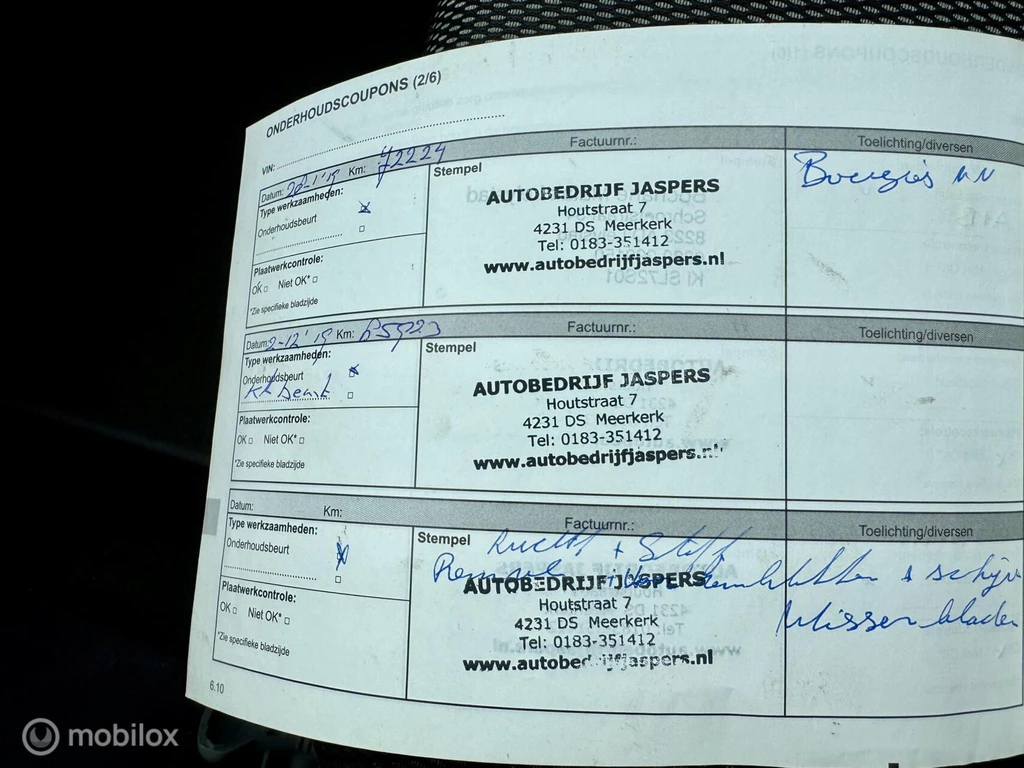 ONDERHOUDSCOUPONS (2/6)
VIN:
Datum: Km: 72224
Factuurnr.:
Toelichting/diversen
Type werkzaamheden:
Onderhoudsbeurt
Plaatwerkcontrole:
OK Niet OK*
*Zie specifieke bladzijde
Stempel
AUTOBEDRIJF JASPERS
Houtstraat 7
4231 DS Meerkerk
Tel: 0183-351412
www.autobedrijfjaspers.nl
Bougies
Datum: 2-12'19 Km: 85923
Factuurnr.:
Toelichting/diversen
Type werkzaamheden:
Onderhoudsbeurt
beurt
Plaatwerkcontrole:
OK Niet OK*
*Zie specifieke bladzijde
Stempel
AUTOBEDRIJF JASPERS
Houtstraat 7
4231 DS Meerkerk
Tel: 0183-351412
www.autobedrijfjaspers.nl
Datum: Km:
Factuurnr.:
Toelichting/diversen
Type werkzaamheden:
Onderhoudsbeurt
Plaatwerkcontrole:
OK Niet OK*
*Zie specifieke bladzijde
Stempel
+
+ schijv
Wisserbladen
AUTOBEDRIJF JASPERS
Houtstraat 7
4231 DS Meerkerk
Tel: 0183-351412
www.autobedrijfjaspers.nl
6.10
mobilox